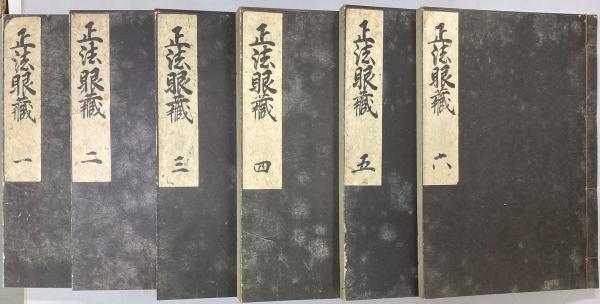 正法眼藏 一
正法眼藏 二
正法眼藏 三
正法眼藏 四
正法眼藏 五
正法眼藏 六